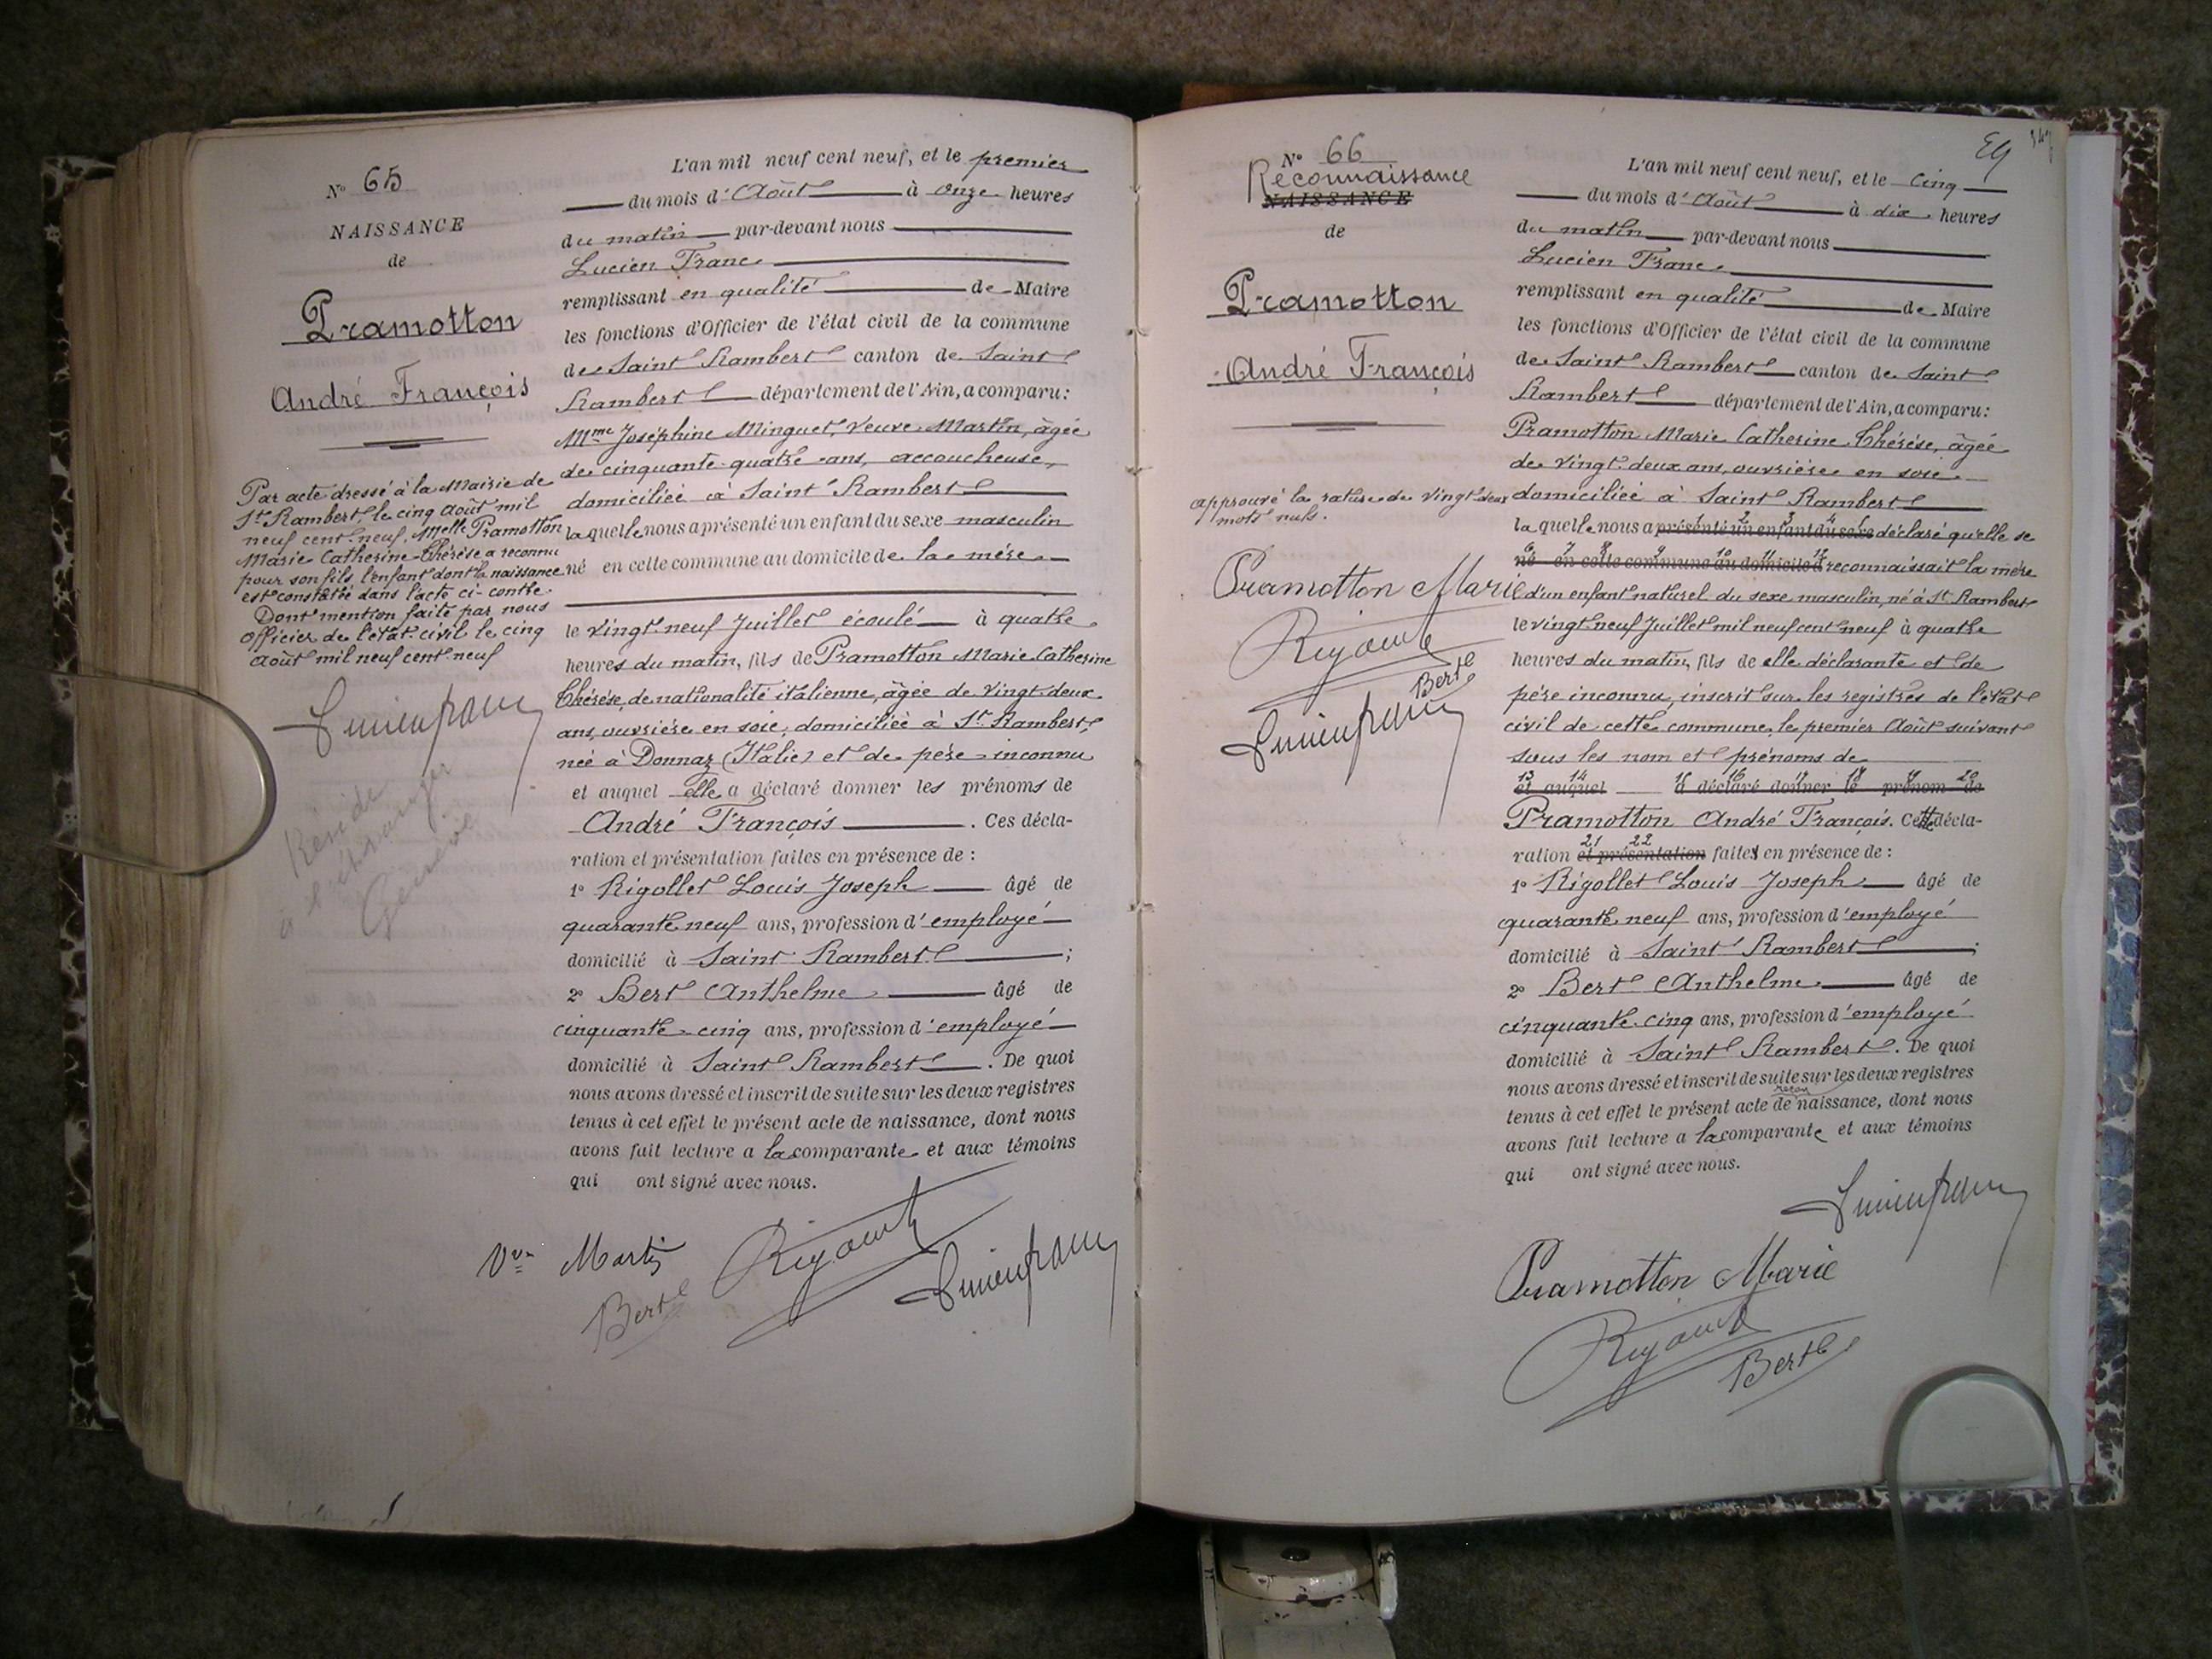 N° 65
NAISSANCE
de
Pramotton
André François
Par acte dressé à la Mairie de
St Rambert, le cinq Août mil
neuf cent neuf, Melle Pramotton
Marie Catherine-Thérèse a reconnu
pour son fils l'enfant dont la naissance
est constatée dans l'acte ci-contre.
Dont mention faite par nous
officier de l'état civil le cinq
Août mil neuf cent neuf
Réside
à l'étranger
L'an mil neuf cent neuf, et le premier
du mois d'Août à onze heures
du matin par-devant nous
Lucien Franc
remplissant en qualité de Maire
les fonctions d'Officier de l'état civil de la commune
de Saint Rambert canton de Saint
Rambert département de l'Ain, a comparu:
Mme Joséphine Minguet, Veuve Martin, âgée
de cinquante-quatre ans, accoucheuse,
domiciliée à Saint Rambert
laquelle nous a présenté un enfant du sexe masculin
né en cette commune au domicile de la mère
le vingt-neuf Juillet écoulé à quatre
heures du matin, fils de Pramotton Marie Catherine
Thérèse, de nationalité italienne, âgée de vingt-deux
ans, ouvrière en soie, domiciliée à St Rambert,
née à Donnaz (Italie) et de père inconnu
et auquel elle a déclaré donner les prénoms de
André François. Ces décla-
ration et présentation faites en présence de :
1° Rigollet Louis Joseph âgé de
quarante neuf ans, profession d'employé
domicilié à Saint Rambert ;
2° Bert Anthelme âgé de
cinquante-cinq ans, profession d'employé
domicilié à Saint Rambert. De quoi
nous avons dressé et inscrit de suite sur les deux registres
tenus à cet effet le présent acte de naissance, dont nous
avons fait lecture a la comparante et aux témoins
qui ont signé avec nous.
Vve Martin
Bert
N° 66
Reconnaissance
NAISSANCE
de
Pramotton
André François
approuvé la rature de vingt deux
mots nuls.
Pramotton Marie
Bert
L'an mil neuf cent neuf, et le cinq
du mois d'Août à dix heures
du matin par-devant nous
Lucien Franc
remplissant en qualité de Maire
les fonctions d'Officier de l'état civil de la commune
de Saint Rambert canton de Saint
Rambert département de l'Ain, a comparu:
Pramotton Marie Catherine Thérèse, âgée
de vingt-deux ans, ouvrière en soie
domiciliée à Saint Rambert
laquelle nous a présenté un enfant du sexe déclaré qu'elle se
né en cette commune au domicile d reconnaissait la mère
d'un enfant naturel du sexe masculin, né à St Rambert
le vingt neuf Juillet mil neuf cent neuf à quatre
heures du matin, fils de elle déclarante et de
père inconnu, inscrit sur les registres de l'état
civil de cette commune, le premier Août suivant
sous les nom et prénoms de
et auquel a déclaré donner le prénom de
Pramotton André François. Cette décla-
ration et présentation faite en présence de :
1° Rigollet Louis Joseph âgé de
quarante neuf ans, profession d'employé
domicilié à Saint Rambert ;
2° Bert Anthelme âgé de
cinquante-cinq ans, profession d'employé
domicilié à Saint Rambert. De quoi
nous avons dressé et inscrit de suite sur les deux registres
tenus à cet effet le présent acte de naissance, dont nous
avons fait lecture a la comparante et aux témoins
qui ont signé avec nous.
Pramotton Marie
Bert